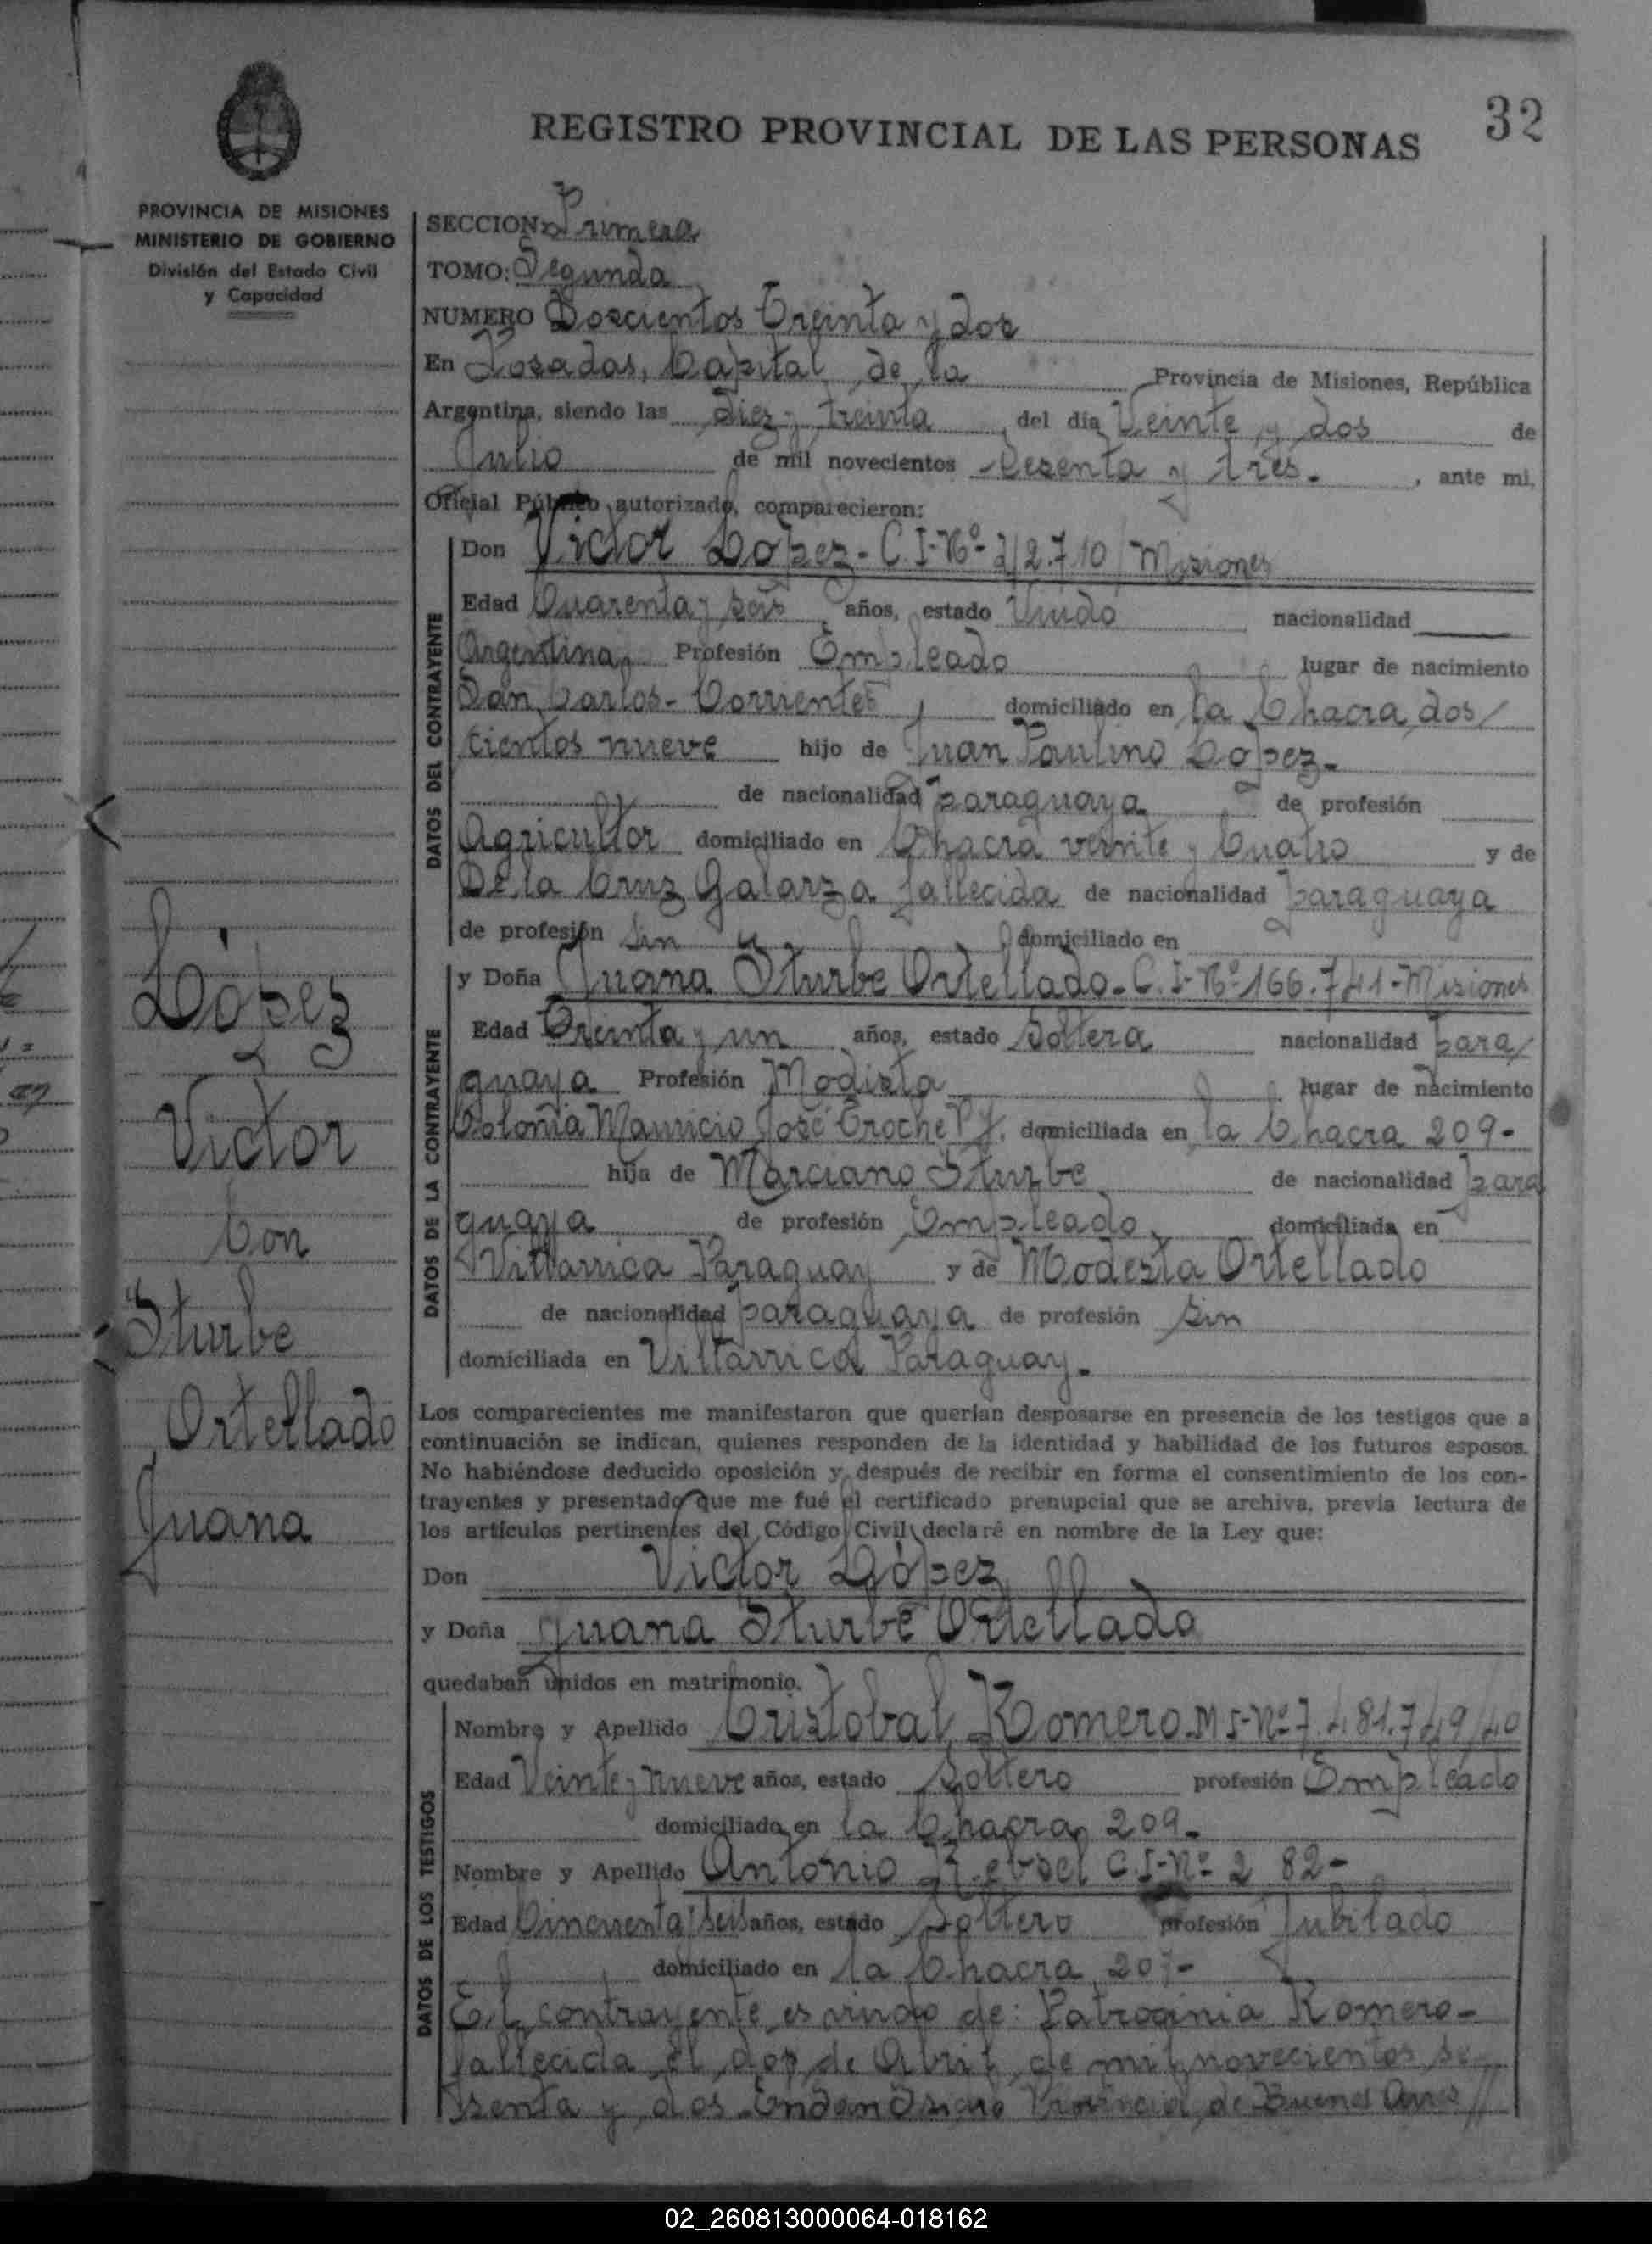 32
REGISTRO PROVINCIAL DE LAS PERSONAS
PROVINCIA DE MISIONES
MINISTERIO DE GOBIERNO
División del Estado Civil
y Capacidad
SECCION: Primera
TOMO: Segunda
NUMERO Doscientos Treinta y dos
En Posadas, Capital de la Provincia de Misiones, República
Argentina, siendo las diez y treinta del día Veinte y dos de
Julio de mil novecientos sesenta y tres. , ante mi,
Oficial Público autorizado, comparecieron:
DATOS DEL CONTRAYENTE
Don Victor López - C.I-Nº- 212.710/Misiones
Edad Cuarenta y seis años, estado Viudo nacionalidad
Argentina, Profesión Empleado lugar de nacimiento
San Carlos - Corrientes, domiciliado en la Chacra dos/
cientos nueve hijo de Juan Paulino López.
de nacionalidad paraguaya de profesión
Agricultor domiciliado en Chacra veinte y Cuatro y de
De la Cruz Galarza fallecida de nacionalidad paraguaya
de profesión sin domiciliado en
DATOS DE LA CONTRAYENTE
y Doña Juana Iturbe Ortellado - C.I-Nº 166.741 - Misiones
Edad Treinta y un años, estado Soltera nacionalidad para/
guaya Profesión Modista lugar de nacimiento
Colonia Mauricio José Troche Py, domiciliada en la Chacra 209-
hija de Marciano Iturbe de nacionalidad para
guaya de profesión Empleado domiciliada en
Villarrica Paraguay y de Modesta Ortellado
de nacionalidad paraguaya de profesión sin
domiciliada en Villarrica Paraguay.
López
Victor
Con
Iturbe
Ortellado
Juana
Los comparecientes me manifestaron que querían desposarse en presencia de los testigos que a
continuación se indican, quienes responden de la identidad y habilidad de los futuros esposos.
No habiéndose deducido oposición y después de recibir en forma el consentimiento de los con-
trayentes y presentado que me fué el certificado prenupcial que se archiva, previa lectura de
los artículos pertinentes del Código Civil declaré en nombre de la Ley que:
Don Victor López
y Doña Juana Iturbe Ortellado
quedaban unidos en matrimonio.
DATOS DE LOS TESTIGOS
Nombre y Apellido Cristobal Romero MI-Nº 7.481.749/40
Edad Veinte y nueve años, estado Soltero profesión Empleado
domiciliado en la Chacra 209-
Nombre y Apellido Antonio C.I-Nº 2 82-
Edad Cincuenta y seis años, estado Soltero profesión Jubilado
domiciliado en la Chacra
El contrayente es viudo de: Patrocinia Romero-
fallecida el dos de Abril de mil novecientos se
senta y dos Provincia de Buenos Aires//
02_260813000064-018162